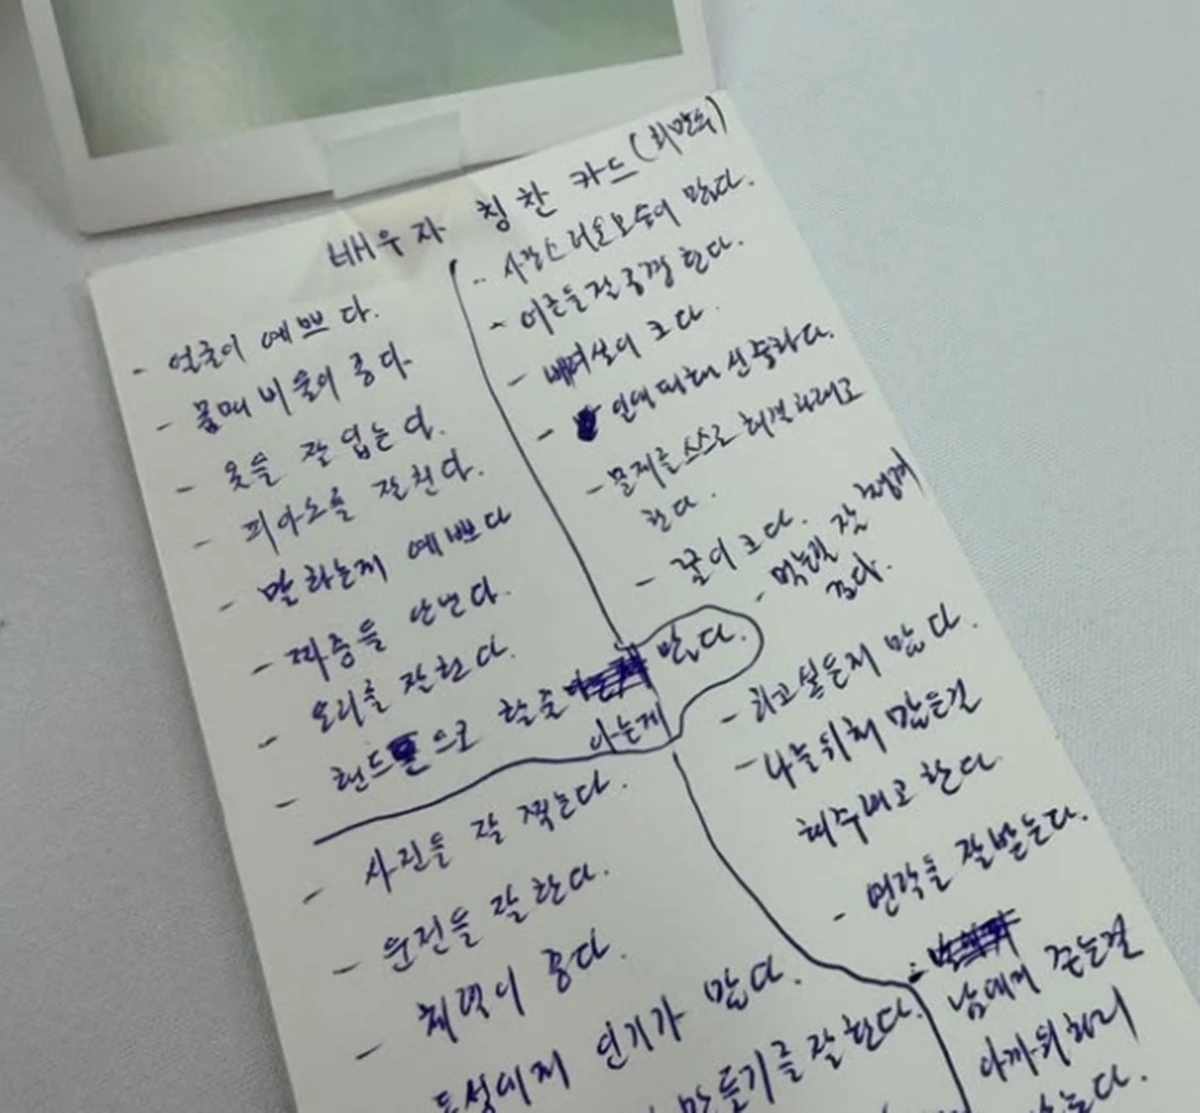 배우자 칭찬 카드 (최만의)
- 얼굴이 예쁘다.
- 몸매 비율이 좋다
- 옷을 잘 입는다.
- 피아노를 잘친다.
- 말하는게 예쁘다
- 짜증을 안낸다.
- 요리를 잘한다.
- 핸드폰으로 할줄 아는게 많다.
- 사진을 잘 찍는다.
- 운전을 잘 한다.
- 체력이 좋다.
동성에게 인기가 많다.
만들기를 잘 한다.
- 사랑스러운모습이 많다.
- 어른들 잘 공경 한다.
- 배려심이 크다.
- 인생 대해 신중하다.
- 문제를 스스로 해결하려고
한다.
- 꿈이 크다.
- 먹는걸 잘 챙겨
준다.
- 하고싶은게 많다.
- 나를위해 많은걸
해주려고 한다.
- 연락을 잘받는다.
- 남에게 주는걸
아까워하지
않는다.